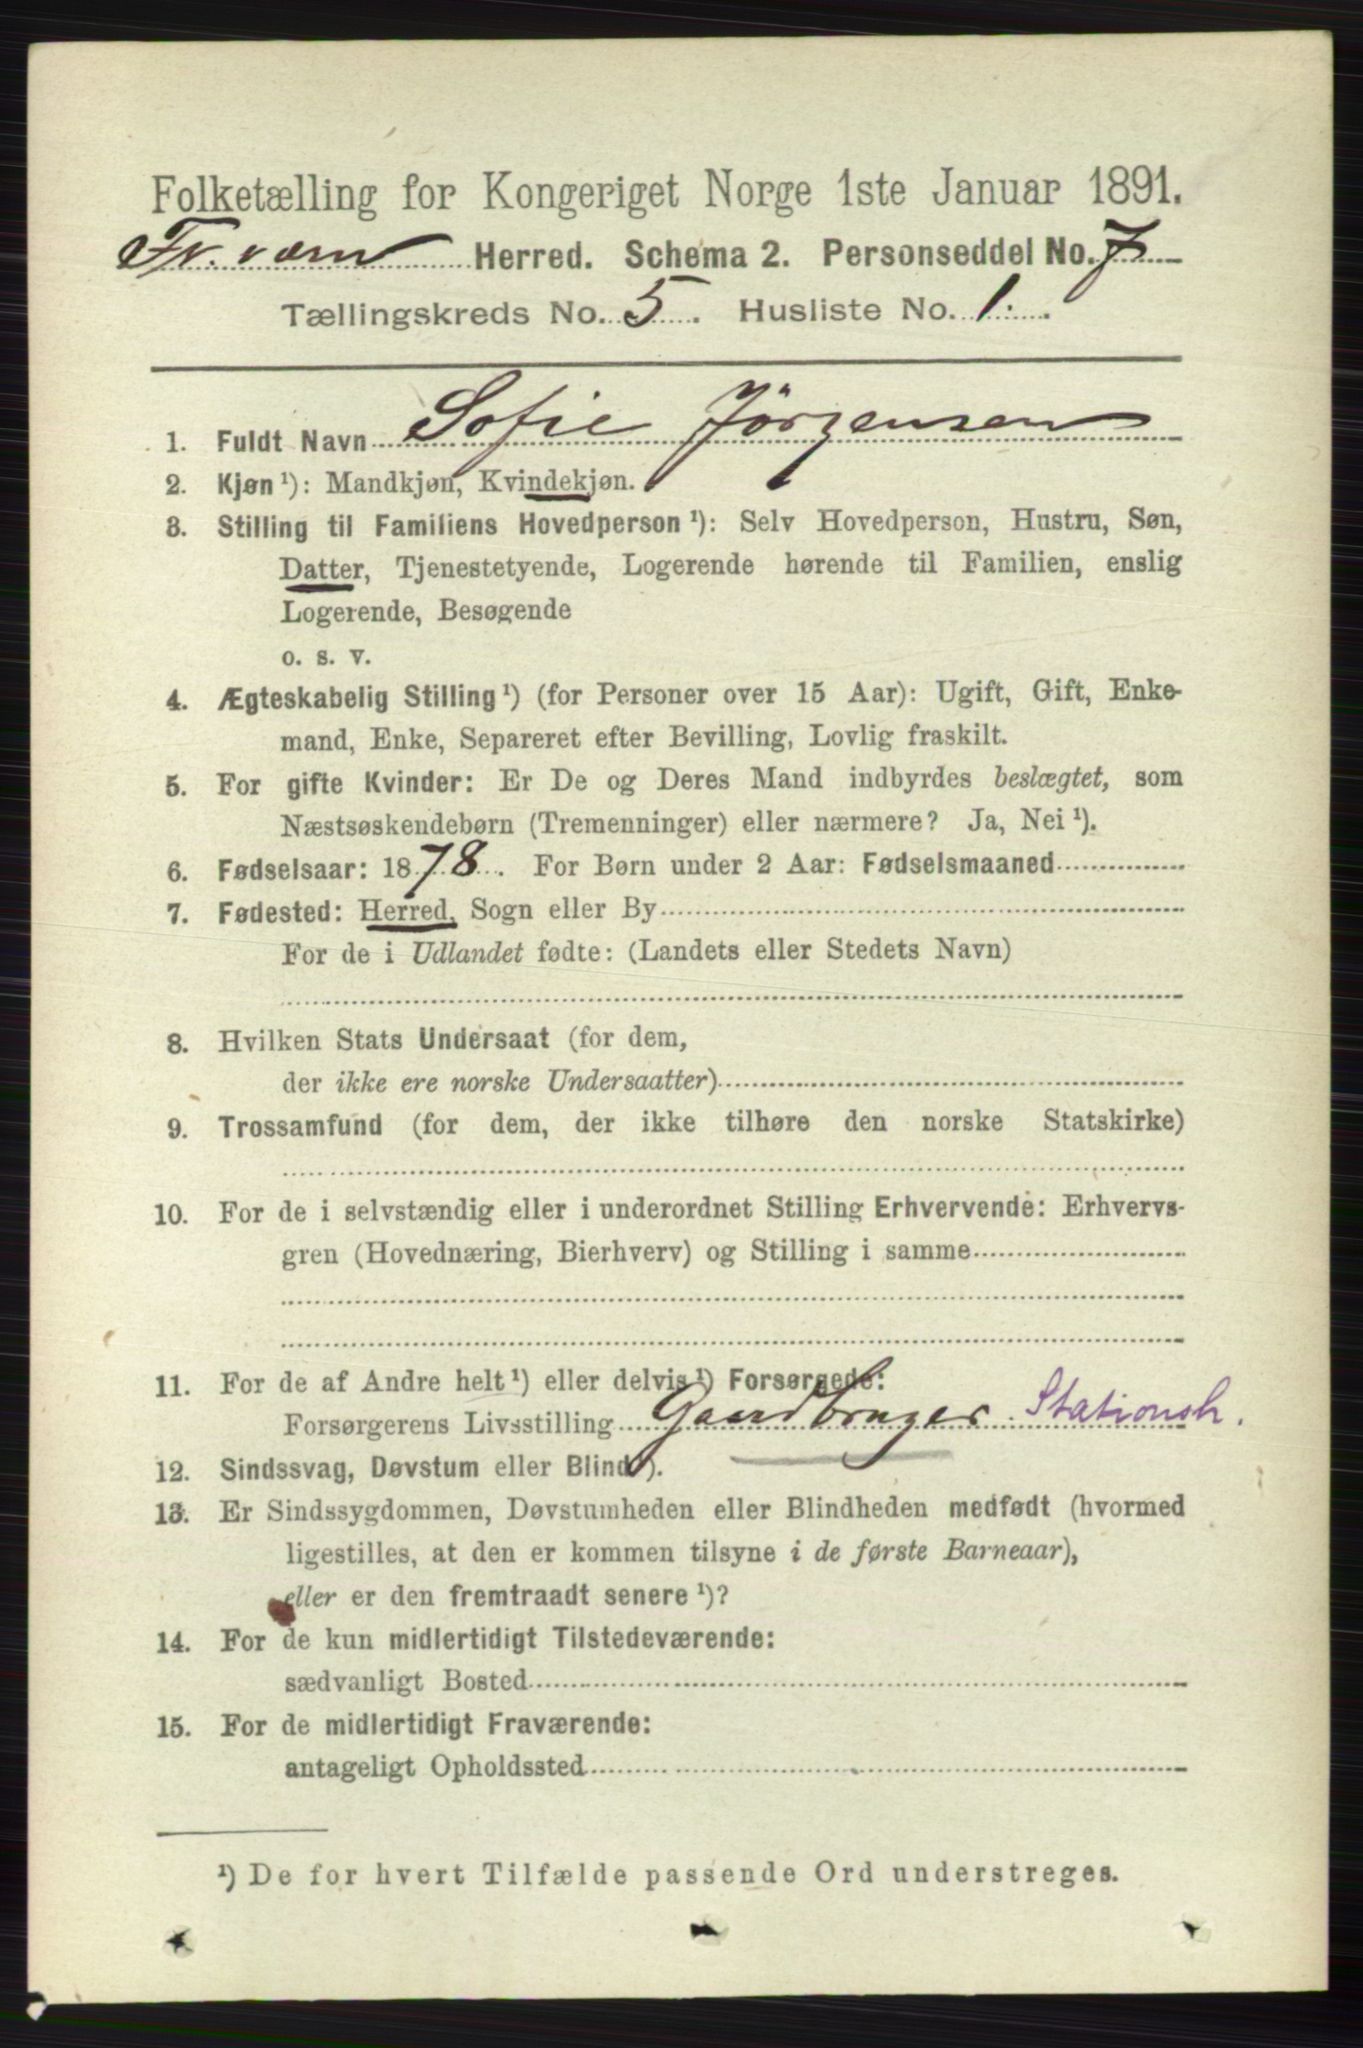 Folketælling for Kongeriget Norge 1ste Januar 1891.
Fr.værn Herred. Schema 2. Personseddel No. 7
Tællingskreds No. 5. Husliste No. 1.
1. Fuldt Navn Sofie Jörgensen
2. Kjøn ¹): Mandkjøn, Kvindekjøn.
3. Stilling til Familiens Hovedperson ¹): Selv Hovedperson, Hustru, Søn,
Datter, Tjenestetyende, Logerende hørende til Familien, enslig
Logerende, Besøgende
o. s. v.
4. Ægteskabelig Stilling ¹) (for Personer over 15 Aar): Ugift, Gift, Enke-
mand, Enke, Separeret efter Bevilling, Lovlig fraskilt.
5. For gifte Kvinder: Er De og Deres Mand indbyrdes beslægtet, som
Næstsøskendebørn (Tremenninger) eller nærmere? Ja, Nei ¹).
6. Fødselsaar: 1878. For Børn under 2 Aar: Fødselsmaaned
7. Fødested: Herred, Sogn eller By
For de i Udlandet fødte: (Landets eller Stedets Navn)
8. Hvilken Stats Undersaat (for dem,
der ikke ere norske Undersaatter)
9. Trossamfund (for dem, der ikke tilhøre den norske Statskirke)
10. For de i selvstændig eller i underordnet Stilling Erhvervende: Erhvervs-
gren (Hovednæring, Bierhverv) og Stilling i samme
11. For de af Andre helt ¹) eller delvis ¹) Forsørgede:
Forsørgerens Livsstilling Gaardbruger Stationsh.
12. Sindssvag, Døvstum eller Blind ¹).
13. Er Sindssygdommen, Døvstumheden eller Blindheden medfødt (hvormed
ligestilles, at den er kommen tilsyne i de første Barneaar),
eller er den fremtraadt senere ¹)?
14. For de kun midlertidigt Tilstedeværende:
sædvanligt Bosted
15. For de midlertidigt Fraværende:
antageligt Opholdssted
¹) De for hvert Tilfælde passende Ord understreges.